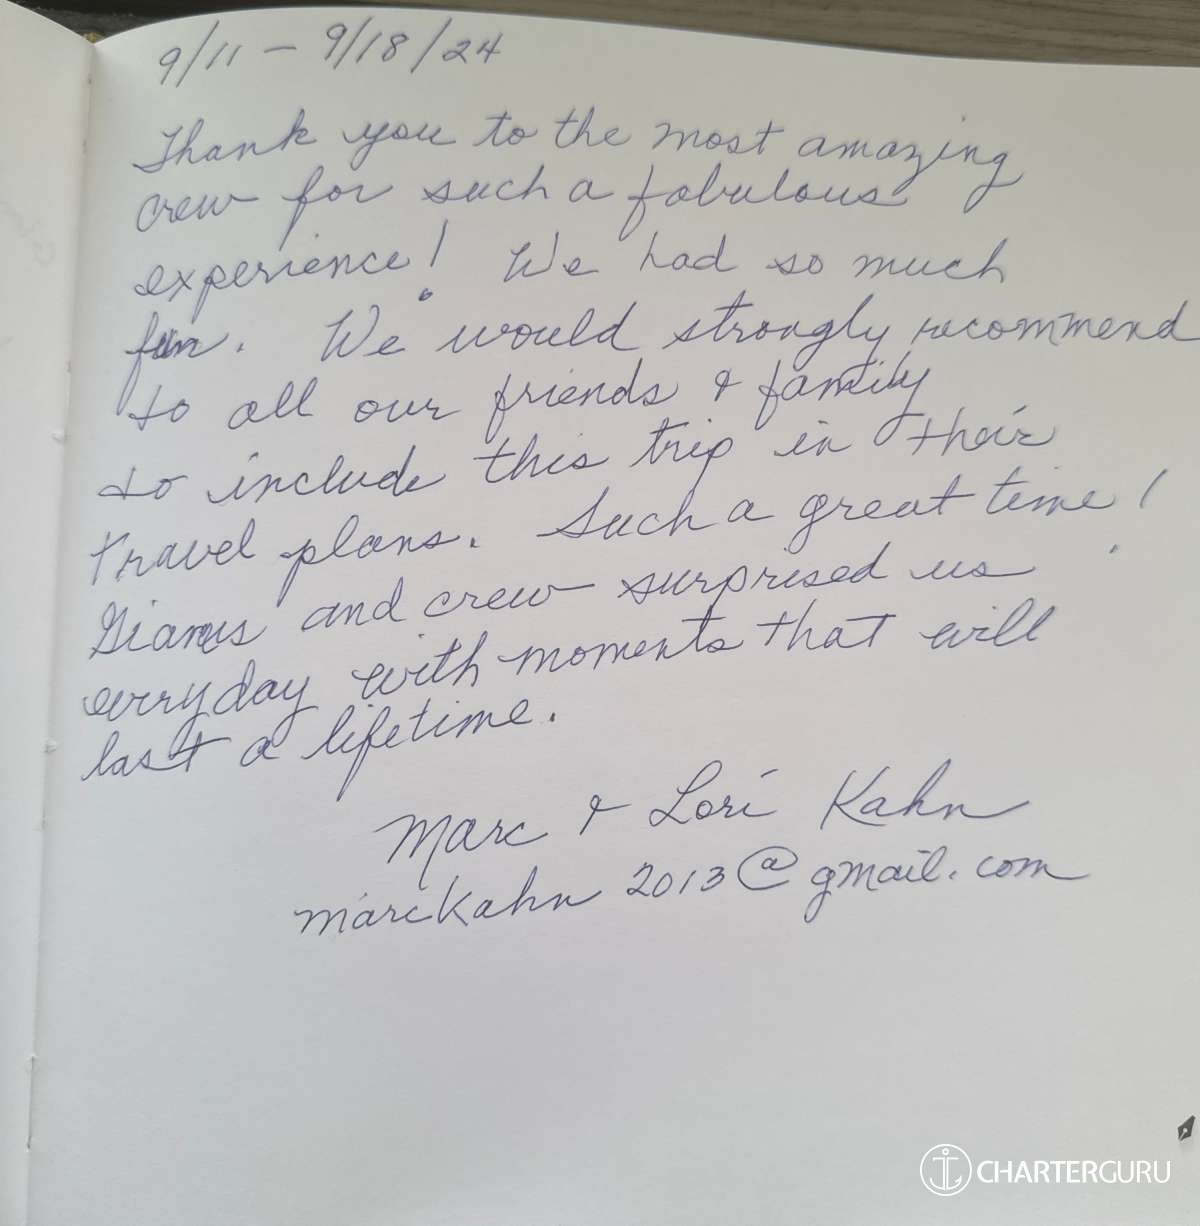 9/11 - 9/18/24
Thank you to the most amazing
crew for such a fabulous
experience! We had so much
fun. We would strongly recommend
to all our friends & family
to include this trip in their
travel plans. Such a great time!
and crew surprised us
everyday with moments that will
last a lifetime.
Marc & Lori Kahn
marckahn2013@gmail.com
CHARTERGURU